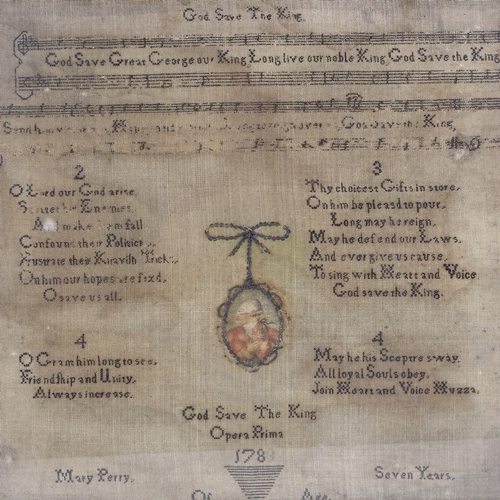 God Save The King,
God Save Great George our King Long live our noble King, God Save the King
God save the King,
2
O Lord our God arise,
Enemies,
And make fall
Confound their Politics,
Frustrate their Knavish Tricks,
On him our hopes are fixd,
O save us all.
3
Thy choicest Gifts in store,
On him be pleasd to pour,
Long may he reign,
May he defend our Laws,
And ever give us cause,
To sing with Heart and Voice,
God save the King.
4
O Gram him long to see,
Friendship and Unity,
Always increase,
4
May he his Sceptre sway,
All loyal Souls obey,
Join Heart and Voice Huzza,
God Save The King
Opera Prima
178
Mary Perry,
Seven Years,
Of Age,